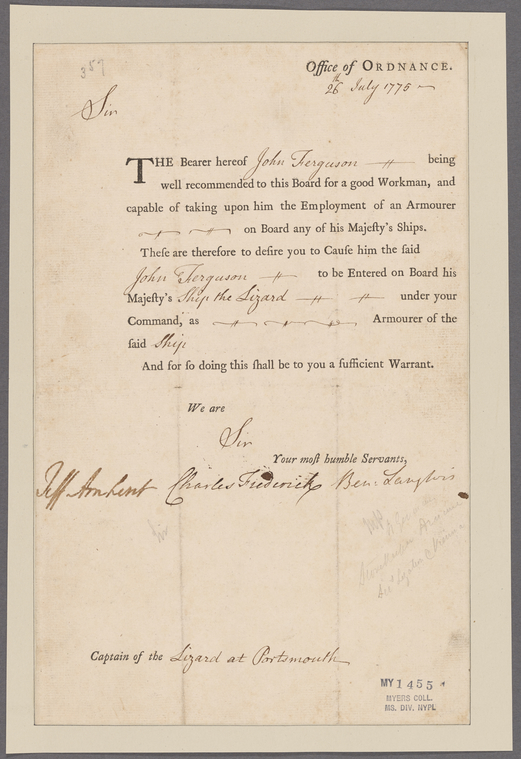 357
Office of ORDNANCE.
26th July 1775
Sir
THE Bearer hereof John Ferguson being
well recommended to this Board for a good Workman, and
capable of taking upon him the Employment of an Armourer
on Board any of his Majeſty's Ships.
Theſe are therefore to deſire you to Cauſe him the ſaid
John Ferguson to be Entered on Board his
Majeſty's Ship the Lizard under your
Command, as Armourer of the
ſaid Ship
And for ſo doing this ſhall be to you a ſufficient Warrant.
We are
Sir
Your moſt humble Servants,
Jeff Amherst Charles Frederick Ben: Langlois
Captain of the Lizard at Portsmouth
MY 1455
MYERS COLL.
MS. DIV. NYPL